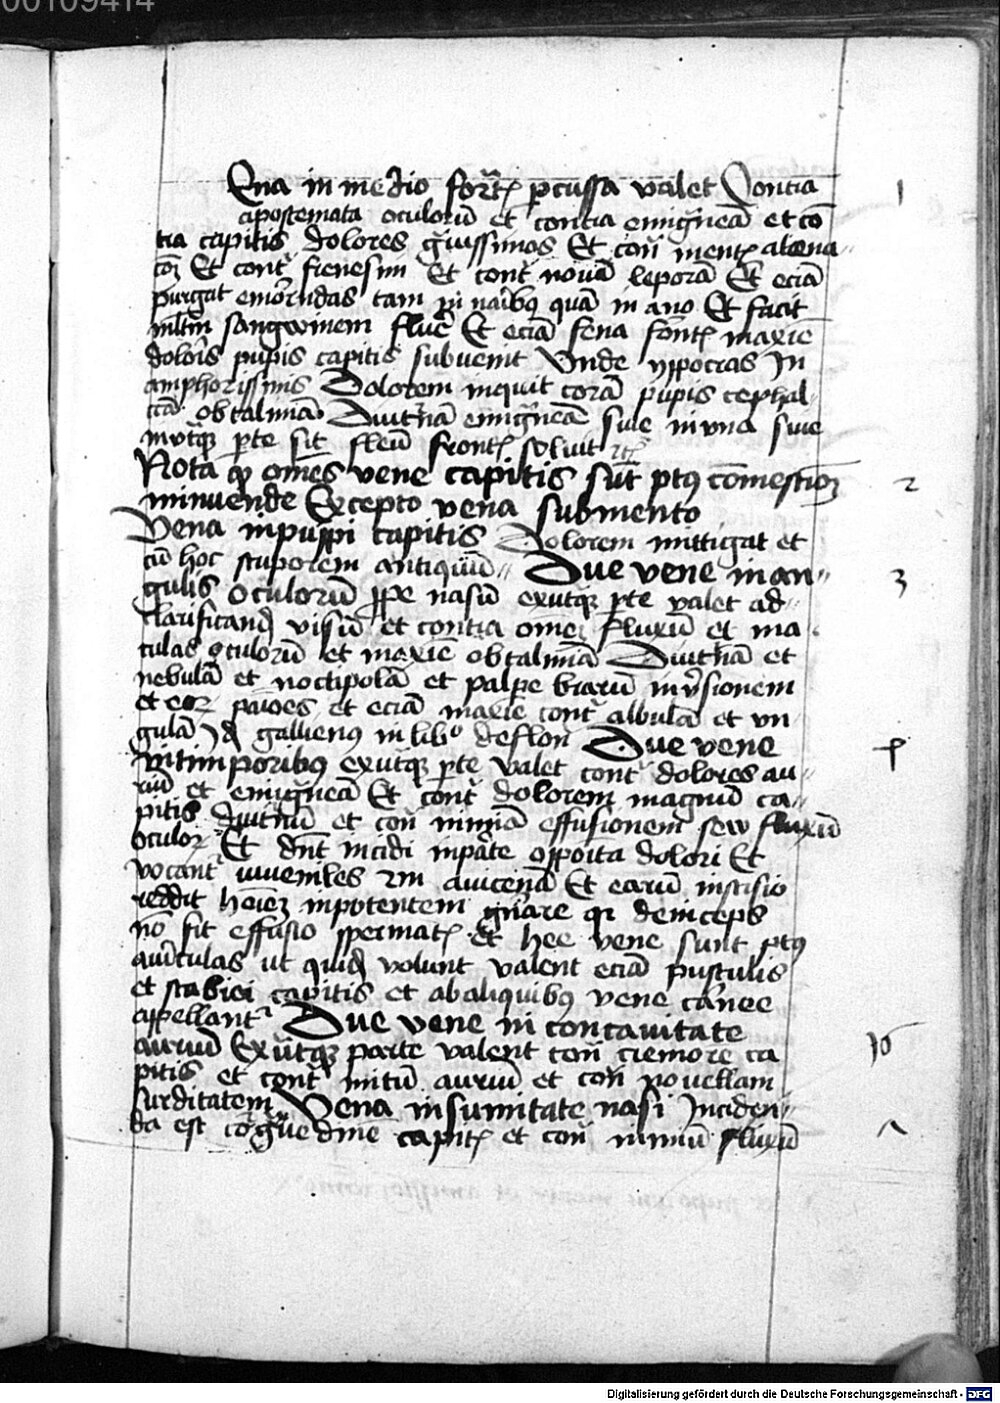 00109414
Ena in medio front[is] p[er]cussa valet Contra
apostemata oculorū et contra emig̃neā et cō
tra capitis dolores g̃uissimos Et cont̃ ment[is] aliena
Et cont̃ frenesim Et cont̃ novā leprā Et eciā
purgat emorridas tam p[er] narib[us] quā in ano Et facit
sangwinem fluē Et eciā sena maxiē
dolorīs pupis capitis subvenit Vnde ypocras In
amphorissmis Dolorem inquit corā pupis cephal
cā obtalmiā Diut̃nā emig̃neā sive in vna sive
in vt̃q[ue] p[ar]te sit fleū front[is] solvit
Nota q[uod] om̄es vene capitis sūt p[os]t comestionē
minuende Excepto vena submento
Vena in puppi capitis Dolorem mittigat et
cū hoc stuporem antiquū Due vene in an
gulis oculorū p[ro]pe nasū ex ut̃q[ue] p[ar]te valet ad
clarificand[um] visū et contra om̄e[m] fluxū et ma
culas oculorū et maxie obtalmiā Diut̃nā et
nebulā et noctipolā et palpe brarū in v̄sionem
et eor[um] et eciā maxie cont̃ albulā et vn
gulā gallienus in lib[r]o Due vene
in timporibus ex ut̃q[ue] p[ar]te valet cont̃ dolores au
riū et emig̃neā Et cont̃ dolorem magnū ca
pitis diut̃nū et cont̃ nimiā effusionem sew fluxū
oculor[um] Et d[ebe]nt incidi in p[ar]te opposita dolori Et
vocant[ur] iuveniles avicenā Et earū inscisio
reddit ho[m]i[n]em inpotentem g[e]n[er]are q[uia] deinceps
nō fit effusio spermat[is] et hee vene sunt p[os]t
auriculas ut quid[am] volunt valent eciā pustulis
et scabiei capitis et ab aliquibus vene
appellant[ur] Due vene in concavitate
auriū Ex ut̃q[ue] parte valent cont̃ tremorē ca
pitis et cont̃ auriū et cont̃ novellam
surditatem Vena in sumitate nasi Inciden
da est capit[is] et cont̃ nimiū fluxū
1
2
3
Digitalisierung gefördert durch die Deutsche Forschungsgemeinschaft - DFG